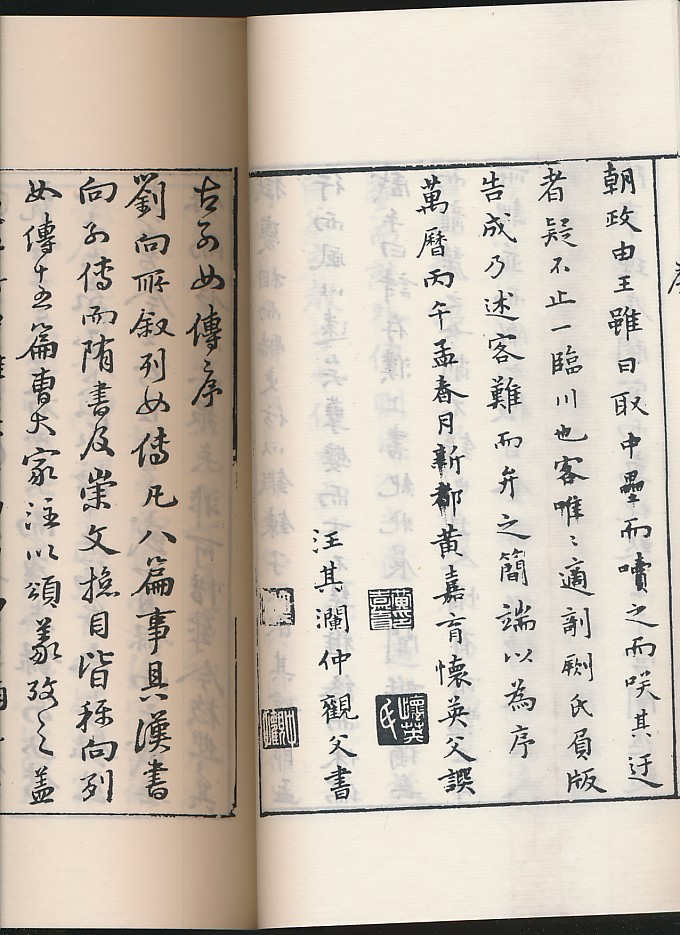 朝政由王雖日取中壘而嘖之而唉其迂
者疑不止一臨川也客唯〻適剞劂氏負版
告成乃述客難而弁之簡端以為序
萬曆丙午孟春月新都黃嘉育懷英父譔
黃嘉育印
懷英氏
汪其瀾仲觀父書
古列女傳序
劉向所叙列女傳凡八篇事具漢書
向列傳而隋書及崇文揔目皆稱向列
女傳十五篇曹大家注以頌義攷之盖